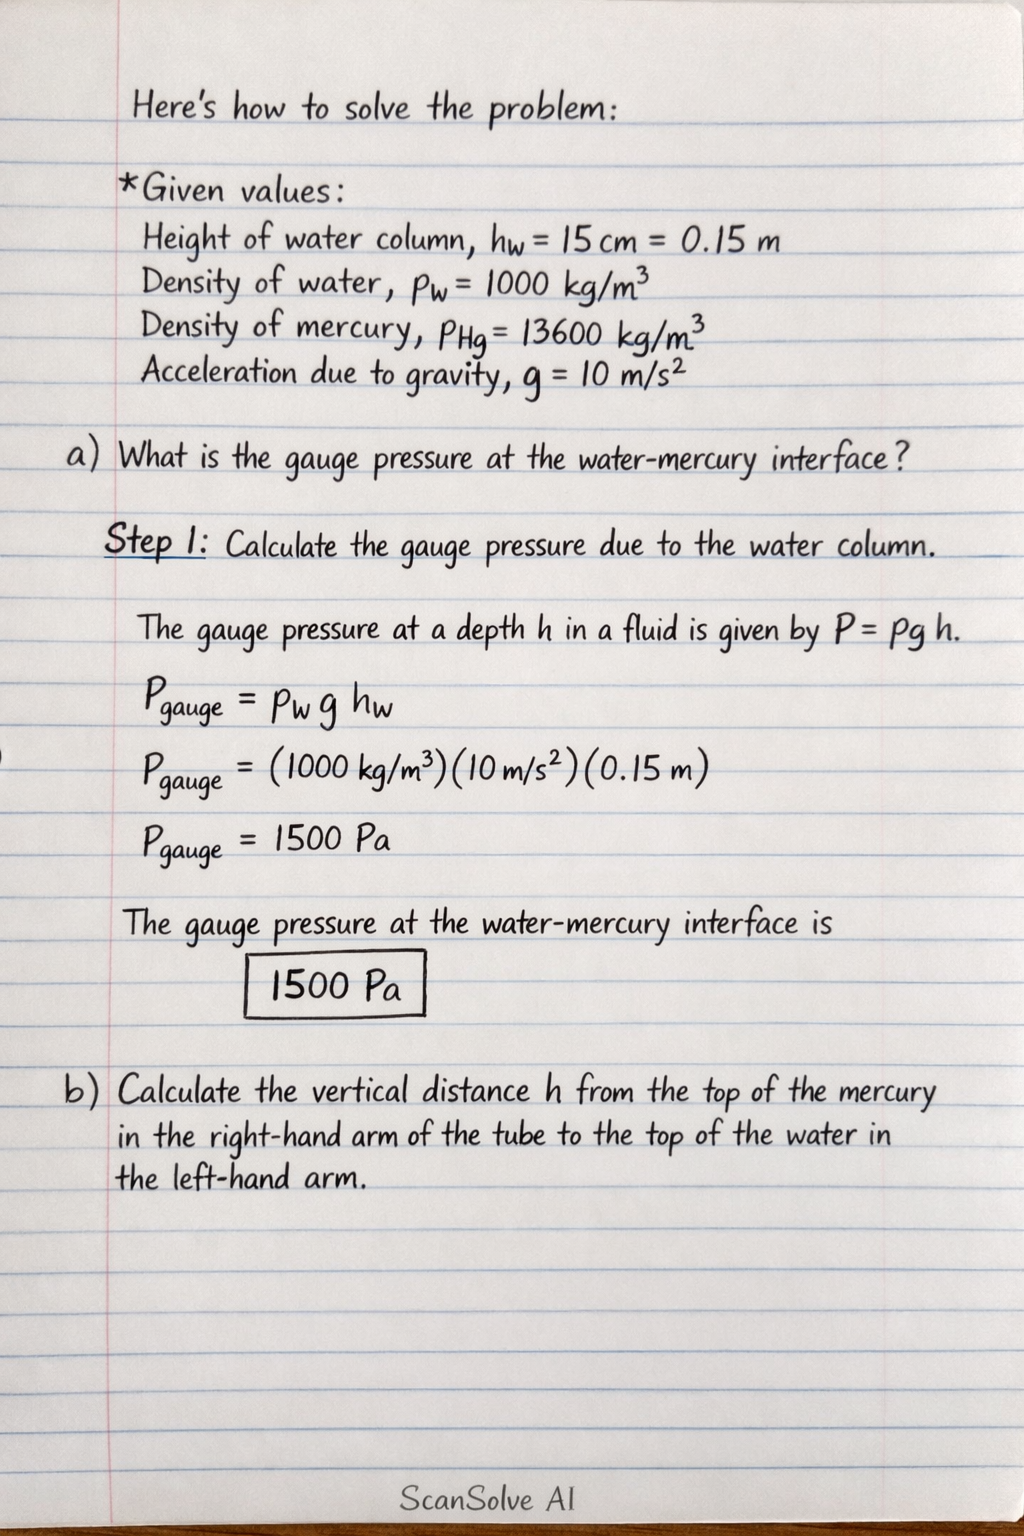 Here's how to solve the problem:
*Given values:
Height of water column, hw = 15 cm = 0.15 m
Density of water, ρw = 1000 kg/m³
Density of mercury, ρHg = 13600 kg/m³
Acceleration due to gravity, g = 10 m/s²
a) What is the gauge pressure at the water-mercury interface?
Step 1: Calculate the gauge pressure due to the water column.
The gauge pressure at a depth h in a fluid is given by P = ρg h.
Pgauge = ρw g hw
Pgauge = (1000 kg/m³)(10 m/s²)(0.15 m)
Pgauge = 1500 Pa
The gauge pressure at the water-mercury interface is
1500 Pa
b) Calculate the vertical distance h from the top of the mercury
in the right-hand arm of the tube to the top of the water in
the left-hand arm.
ScanSolve AI